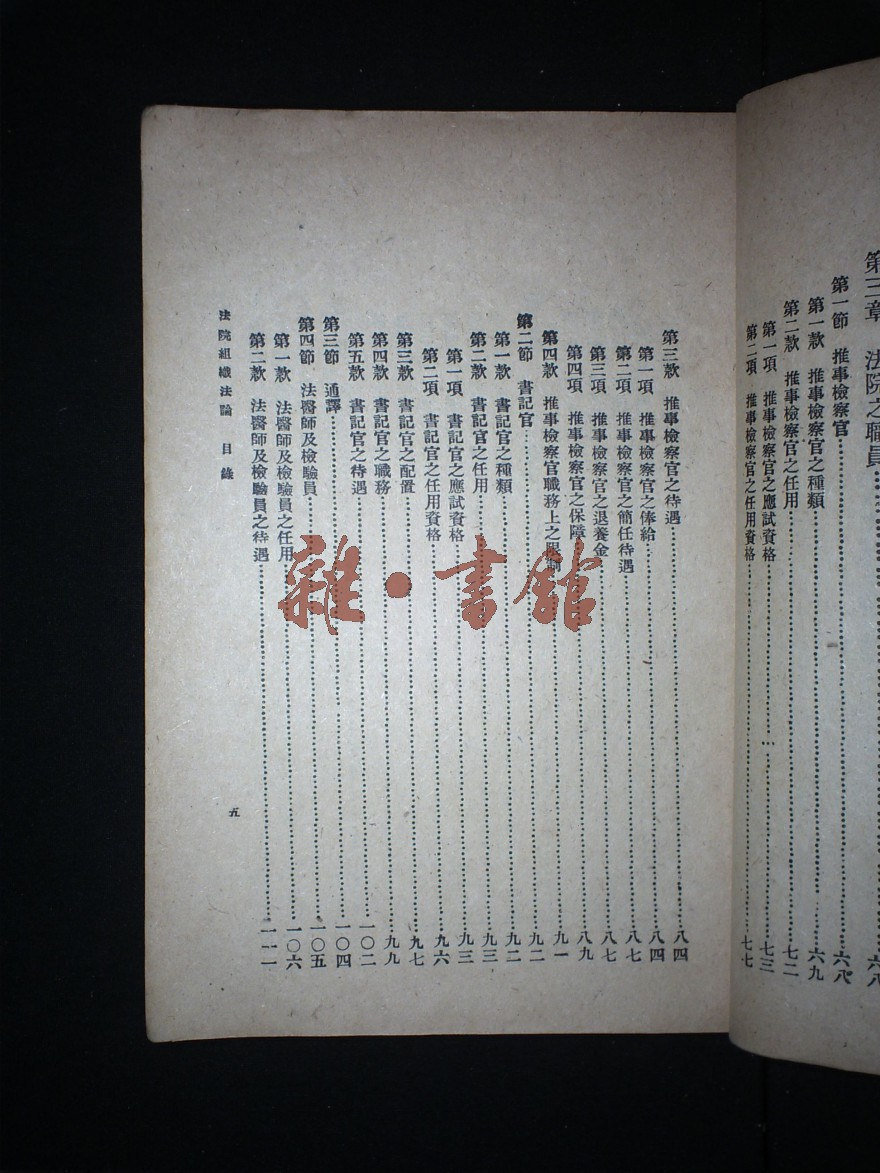 第三章　法院之職員……六八
第一節　推事檢察官……六八
第一款　推事檢察官之種類……六九
第二款　推事檢察官之任用……七二
第一項　推事檢察官之應試資格……七三
第二項　推事檢察官之任用資格……七七
第三款　推事檢察官之待遇……八四
第一項　推事檢察官之俸給……八四
第二項　推事檢察官之簡任待遇……八七
第三項　推事檢察官之退養金……八七
第四項　推事檢察官之保障……八九
第四款　推事檢察官職務上之限制……九一
第二節　書記官……九二
第一款　書記官之種類……九二
第二款　書記官之任用……九三
第一項　書記官之應試資格……九三
第二項　書記官之任用資格……九六
第三款　書記官之配置……九七
第四款　書記官之職務……九九
第五款　書記官之待遇……一〇二
第三節　通譯……一〇四
第四節　法醫師及檢驗員……一〇五
第一款　法醫師及檢驗員之任用……一〇六
第二款　法醫師及檢驗員之待遇……一一一
法院組織法論　目錄　五
雜·書館